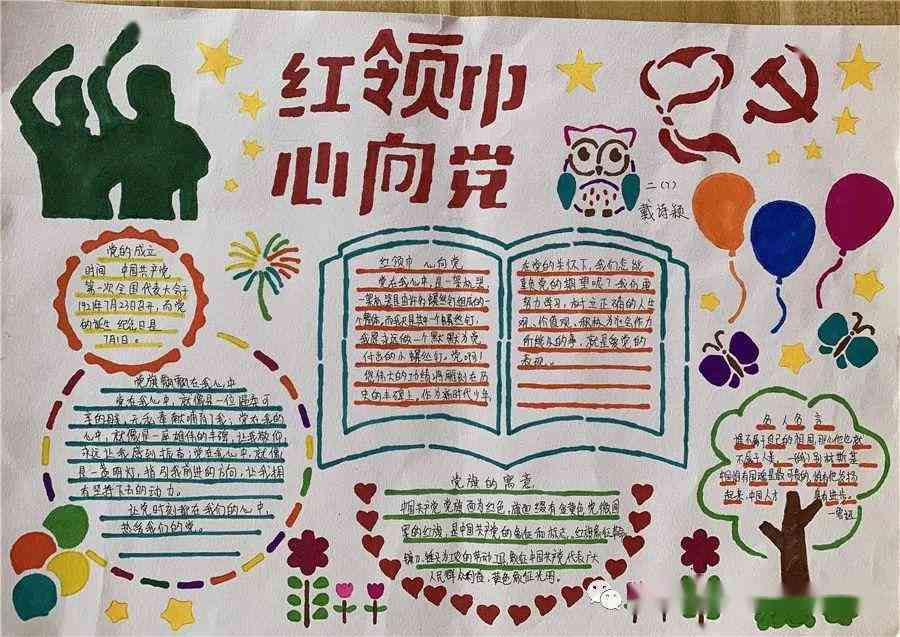 红领巾
心向党
二(7)
戴诗颖
党的成立
时间 中国共产党
第一次全国代表大会于
1921年7月23日召开，而党
的诞生纪念日是
7月1日。
红领巾 心向党
党在我心中，是一架机器，
一架机器是由许多螺丝钉组成的一
个整体，而我只是其中一个螺丝钉，
我愿永远做一个默默为党
付出的小螺丝钉。党啊！
您伟大的功绩将雕刻在历
史的丰碑上。作为新时代少年，
在党的关怀下，我们怎能
辜负党的期望呢？我们要
努力学习，树立正确的人生
观、价值观、积极为社会作力
所能及的事，就是爱党的
表现。
党旗飘飘在我心中
党在我心中，就像是一位
母亲，无私奉献哺育了我；党在我的
心中，就像是一座雄伟的丰碑，让我敬仰，
永远让我感到指南；党在我心中，就像
是一盏明灯，指引我前进的方向，让我拥
有坚持下去的动力。
让党时刻都在我们的心中，
热爱我们的党。
党旗的寓意
中国共产党党旗面为红色，旗面缀有金黄色党徽图
案的红旗，是中国共产党的象征和标志，红旗象征革命，
镰刀、锤头为工农的劳动工具，象征中国共产党代表广大
人民群众利益，黄色象征光明。
名人名言
谁不属于自己的祖国，那么他也就
不属于人类。——别林斯基